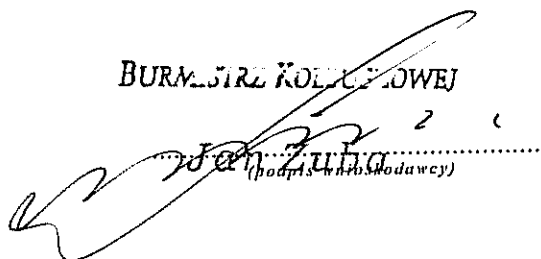 BURMISTRZ KOLBUSZOWEJ
Jan Zuba
(podpis wnioskodawcy)